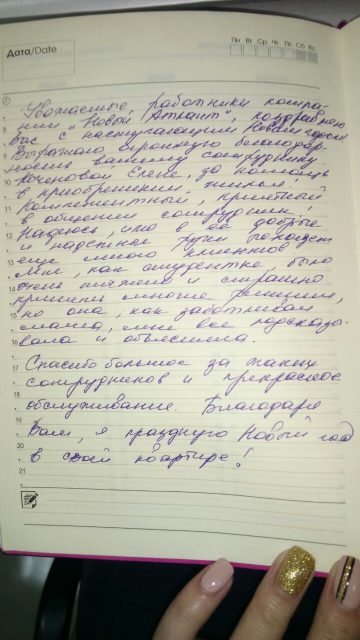 Дата/Date
Пн Вт Ср Чт Пт Сб Вс
8
9
10
11
12
13
14
15
16
17
18
19
20
21
Уважаемые работники компа-
нии "Новый Атлант", поздравляю
вас с наступающим Новым годом!
Выражаю огромную благодар-
ность вашему сотруднику
Елене, за помощь
в приобретении жилья!
Компетентный, приятный
в общении сотрудник.
Надеюсь, что в её добрые
и надежные руки попадет
еще много клиентов.
Мне, как студентке, было
очень тяжело и страшно
принять многие решения,
но она, как заботливая
мама, мне все подсказы-
вала и объясняла.
Спасибо большое за таких
сотрудников и прекрасное
обслуживание. Благодаря
Вам, я праздную Новый год
в своей квартире!